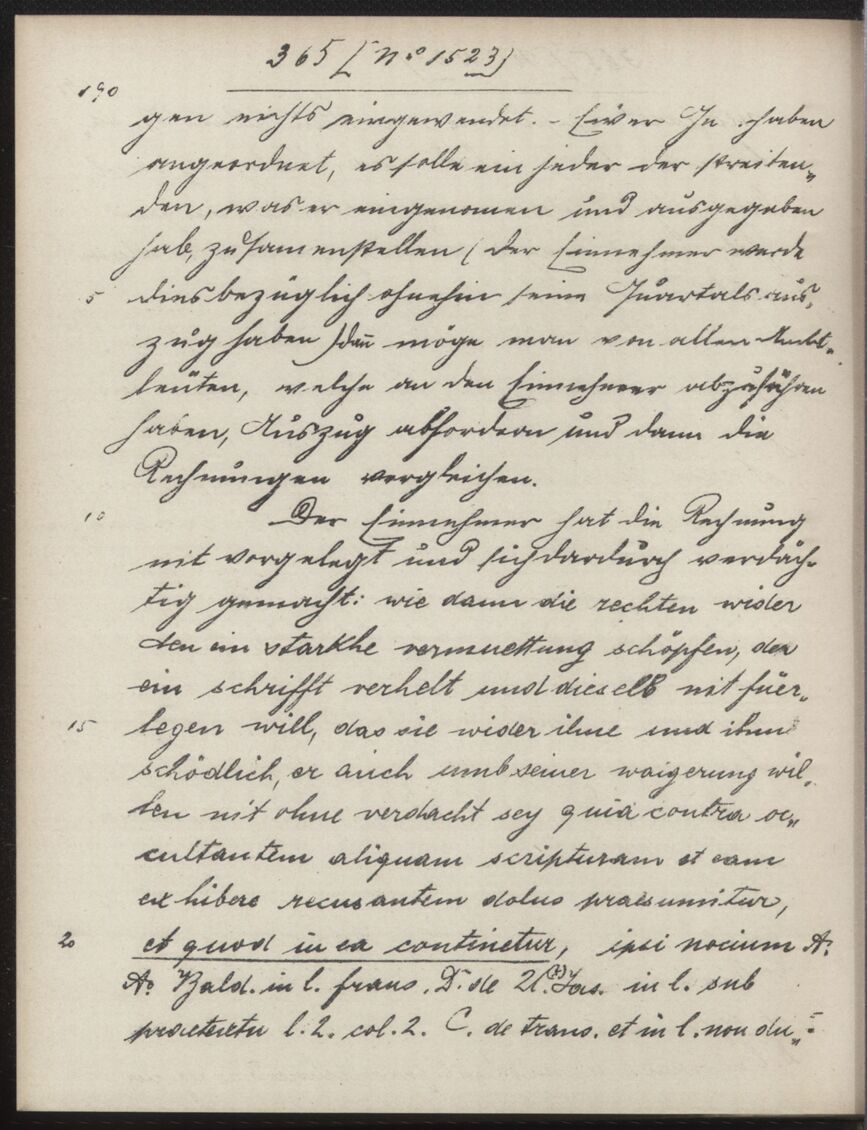 365 [Nº 1523]
190
gen nichts eingewendet. - Euer Gn. haben
angeordnet, es solle ein jeder der streiten„
den, was er eingenomen und ausgegeben
hab, zusamenstellen (der Einnehmer werde
5 diesbezüglich ohnehin seine Quartalsaus„
zug haben) dañ möge man von allen Ambt„
leuten, welche an den Einnehmer abzuführen
haben, Auszug abfordern und dann die
Rechnungen vergleichen.
10 Der Einnehmer hat die Rechnung
nit vorgelegt und sich dardurch verdäch„
tig gemacht: wie dann die rechten wider
den ein starkhe vermuettung schöpfen, der
ein schrifft verhelt und dieselb nit füer„
15 legen will, das sie wider ihne und ihme
schödlich, er auch umb seiner waigerung wil„
len nit ohne verdacht sey quia contra oc„
cultantem aliquam scripturam et eam
exhibere recusantem dolus praesumitur,
20 et quod in ea continetur, ipsi nocium A.
Aº Bald. in l. fraus. D. de Jas. in l. sub
praetextu l. 2. col. 2. C. de trans. et in l. non du„